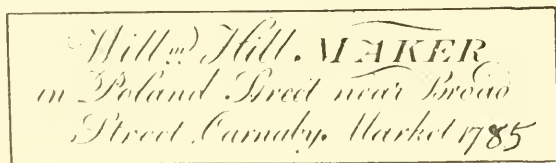 Will.m Hill. MAKER
in Poland Street near Broad
Street Carnaby Market 1785